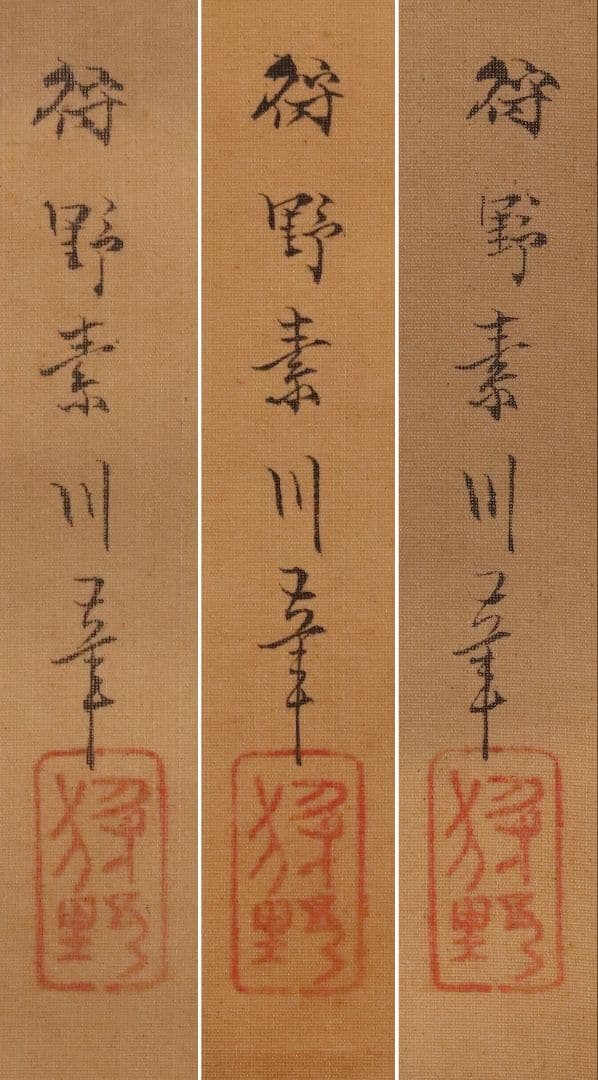 狩野素川筆
狩野
狩野素川筆
狩野
狩野素川筆
狩野